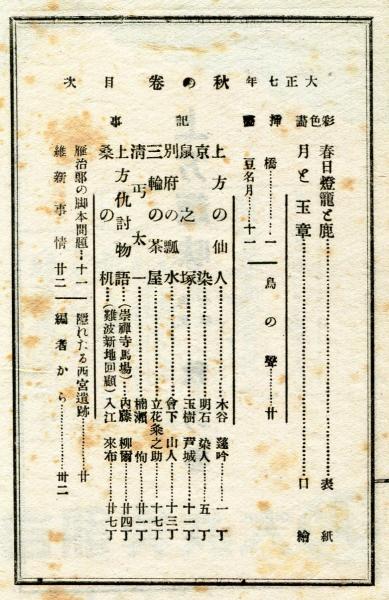 大正七年 秋の卷 目次
彩色畵
春日燈籠と鹿……表紙
月と玉章……口繪
挿畵
橋……一
鳥の聲……廿
豆名月……十一
記事
上方の仙人……木谷 蓬吟…一丁
京染……明石 染人…五丁
鼠之塚……玉樹 芦城…十一丁
別府の瓢水……會下 山人…十三丁
三輪の茶屋……立花乘之助…十七丁
淸丐太一……楠瀬 恂…廿一丁
上方仇討物語(崇禪寺馬場)…内藤 柳爾…廿四丁
桑の机(難波新地回顧)入江 來布…廿七丁
雁治郞の脚本問題…十一
隱れたる西宮遺跡……廿
維新事情 廿二
編者から……卅二